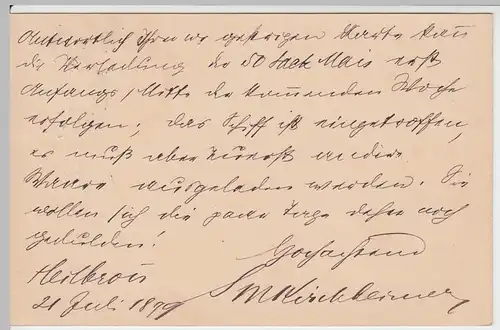 Antwortlich Ihrer w. gestrigen Karte kann
die Verladung der 50 Sack Mais erst
Anfangs/Mitte der kommenden Woche
erfolgen; das Schiff ist eingetroffen,
es muß aber zuerst andere
Waare ausgeladen werden. Sie
wollen sich die paar Tage daher noch
gedulden!
Hochachtend
Heilbronn
21 Juli 1899
SM Kirchheimer